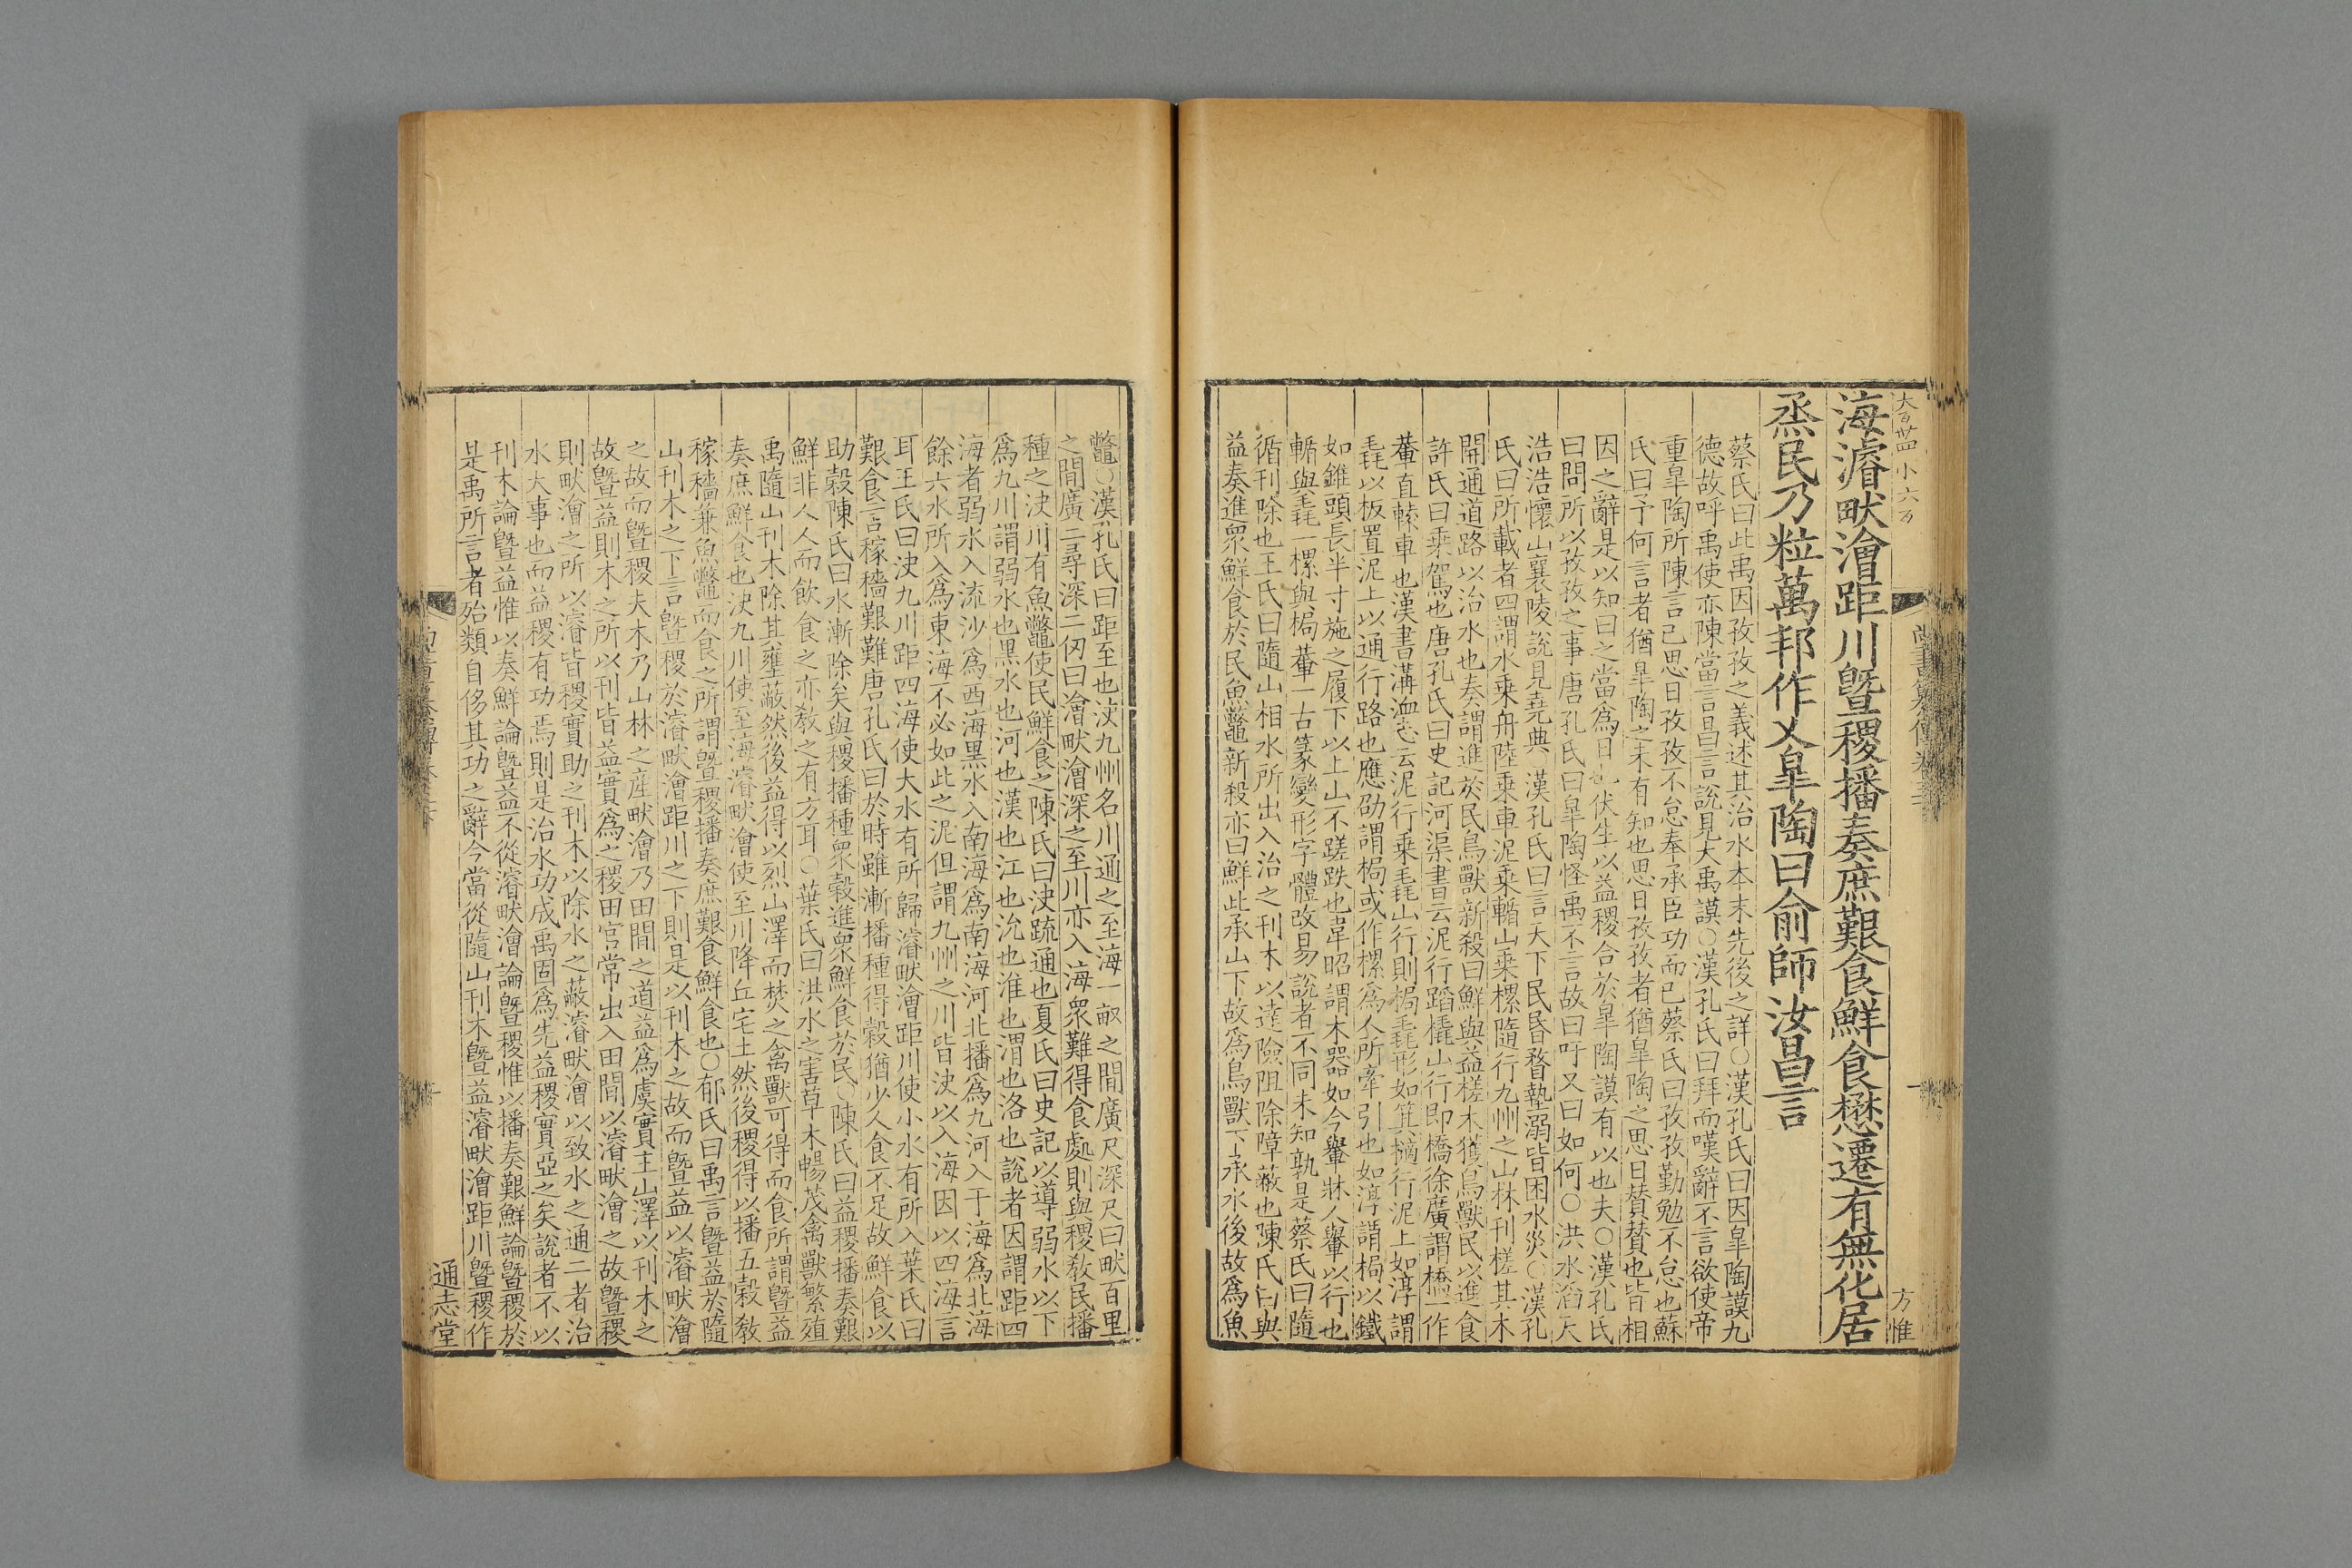 大百廿四 小六百
方惟
海濬畎澮距川曁稷播奏庶艱食鮮食懋遷有無化居
烝民乃粒萬邦作乂臯陶曰俞師汝昌言
蔡氏曰此禹因孜孜之義述其治水本末先後之詳○漢孔氏曰因臯陶謨九
德故呼禹使亦陳當言昌言說見大禹謨○漢孔氏曰拜而嘆辭不言欲使帝
重臯陶所陳言己思日孜孜不怠奉承臣功而已蔡氏曰孜孜勤勉不怠也蘇
氏曰予何言者猶臯陶之未有知也思日孜孜者猶臯陶之思日贊贊也皆相
因之辭是以知曰之當爲日也伏生以益稷合於臯陶謨有以也夫○漢孔氏
曰問所以孜孜之事唐孔氏曰臯陶怪禹不言故曰吁又曰如何○洪水滔天
浩浩懷山襄陵說見堯典○漢孔氏曰言天下民昬瞀墊溺皆困水災○漢孔
氏曰所載者四謂水乗舟陸乗車泥乗輴山乗樏隨行九州之山林刊槎其木
開通道路以治水也奏謂進於民鳥獸新殺曰鮮與益槎木獲鳥獸民以進食
許氏曰乗駕也唐孔氏曰史記河渠書云泥行蹈橇山行即橋徐廣謂橋一作
輂直轅車也漢書溝洫志云泥行乗毳山行則梮毳形如箕擿行泥上如淳謂
毳以板置泥上以通行路也應劭謂梮或作樏爲人所牽引也如淳謂梮以鐵
如錐頭長半寸施之履下以上山不蹉跌也韋昭謂木器如今轝牀人轝以行也
輴與毳一樏與梮輂一古篆變形字體改易說者不同未知孰是蔡氏曰隨
循刊除也王氏曰隨山相水所出入治之刊木以達險阻除障蔽也陳氏曰與
益奏進衆鮮食於民魚鼈新殺亦曰鮮此承山下故爲鳥獸下承水後故爲魚
鼈○漢孔氏曰距至也決九州名川通之至海一畝之間廣尺深尺曰畎百里
之間廣二尋深二仞曰澮畎澮深之至川亦入海衆難得食處則與稷敎民播
種之決川有魚鼈使民鮮食之陳氏曰決疏通也夏氏曰史記以導弱水以下
爲九川謂弱水也黒水也河也漢也江也沇也淮也渭也洛也說者因謂距四
海者弱水入流沙爲西海黒水入南海爲南海河北播爲九河入于海爲北海
餘六水所入爲東海不必如此之泥但謂九州之川皆決以入海因以四海言
耳王氏曰決九川距四海使大水有所歸濬畎澮距川使小水有所入葉氏曰
艱食言稼穡艱難唐孔氏曰於時雖漸播種得穀猶少人食不足故鮮食以
助穀陳氏曰水漸除矣與稷播種衆穀進衆鮮食於民○陳氏曰益稷播奏艱
鮮非人人而飲食之亦敎之有方耳○葉氏曰洪水之害草木暢茂禽獸繁殖
禹隨山刊木除其壅蔽然後益得以烈山澤而焚之禽獸可得而食所謂曁益
奏庶鮮食也決九川使至海濬畎澮使至川降丘宅土然後稷得以播五穀敎
稼穡兼魚鼈而食之所謂曁稷播奏庶艱食鮮食也○郁氏曰禹言曁益於隨
山刊木之下言曁稷於濬畎澮距川之下則是以刊木之故而曁益以濬畎澮
之故而曁稷夫木乃山林之産畎澮乃田間之道益爲虞實主山澤以刊木之
故曁益則木之所以刊皆益實爲之稷田官常出入田間以濬畎澮之故曁稷
則畎澮之所以濬皆稷實助之刊木以除水之蔽濬畎澮以致水之通二者治
水大事也而益稷有功焉則是治水功成禹固爲先益稷實亞之矣說者不以
刊木論曁益惟以奏鮮論曁益不從濬畎澮論曁稷惟以播奏艱鮮論曁稷於
是禹所言者殆類自侈其功之辭今當從隨山刊木曁益濬畎澮距川曁稷作
通志堂